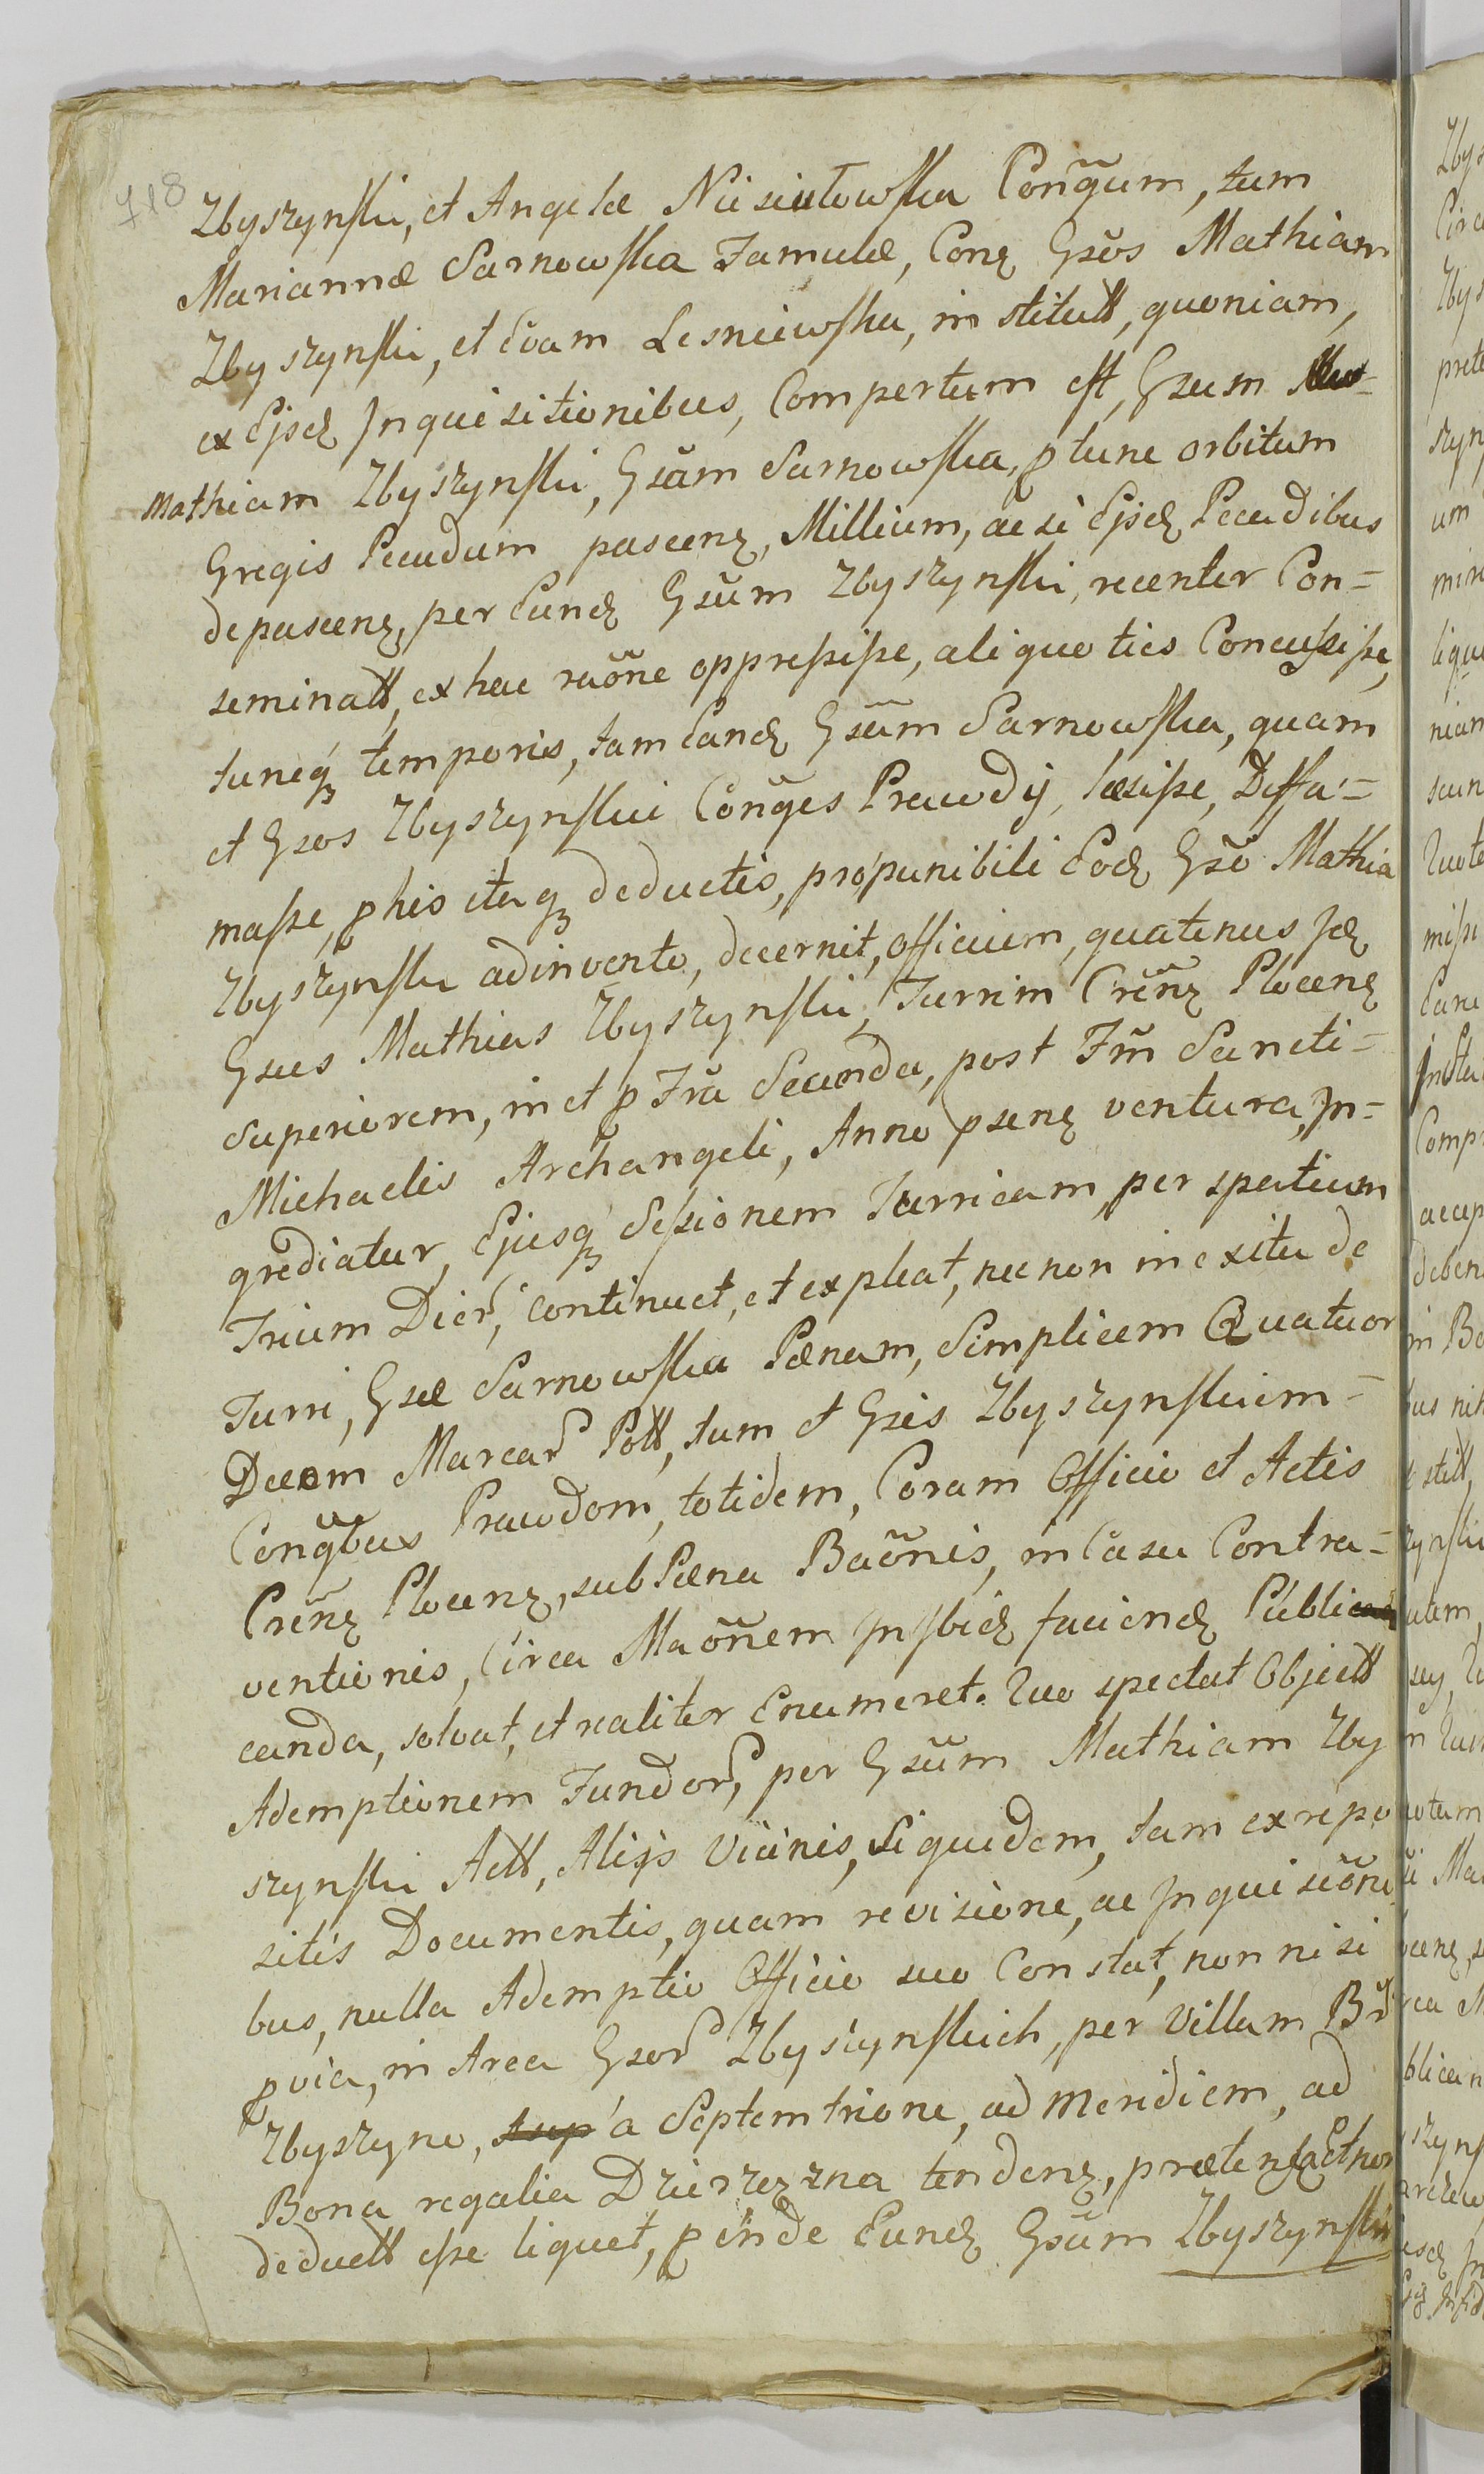 718
Zbyszynski, et Angelæ Niesiułowska Conğum, tum
Mariannæ Sarnowska Famulæ, Conȝ Gsos̃ Mathiam
Zbyszynski, et Evam Lesniewska, institutt, quoniam,
ex Ejsdȝ Inquisitionibus, Compertum est, Gsum
Mathiam Zbyszynski, Gsãm Sarnowska, p tunc orbitum
Gregis Pecudum pascenȝ, Millium, ac si Ejsdȝ Pecudibus
depascenȝ, per Eundȝ Gsũm Zbyszynski, recenter Con=
seminatt, ex hac raõne oppressisse, aliquoties Concussisse,
tuncqȝ temporis, tam Eandȝ Gsãm Sarnowska, quam
et Gsos Zbyszynskie Conğes Prawdy, læsisse, Diffa=
masse, p his itaqȝ deductis, pro punibili Eodȝ Gsõ Mathia
Zbyszynski adinvento, decernit, officium, quatenus Idȝ
Gsus Mathias Zbyszynski, Turrim Crẽnȝ Plocenȝ
Superiorem, in et p Frã Secunda, post Fm̃ Sancti=
Michaelis Archangeli, Anno psenȝ ventura, In=
grediatur, Ejusqȝ Sessionem Turricam, per spatium
Trium Dier, continuet, et expleat, nec non in exitu de
Turri, Gsæ Sarnowska Pænam, Simplicem Quatuor
Decem Marcar Pott, tum et Gsis Zbyszynskiem=
Conğbus Prawdom, totidem, Coram Officio et Actis
Crẽnȝ Plocenȝ, sub Pæna Baõnis, in Casu Contra=
ventionis, Circa Maõnem Insbidȝ faciendȝ Publi
canda, solvat, et realiter Enumeret. Quo spectat Objectt
Ademptionem Fundor, per Gsũm Mathiam Zby
szynski Actt, Alijs Vicinis, siquidem, tam ex repo
sitis Documentis, quam revisione, ac Inquisitõni
bus, nulla Ademptio Officio suo Constat, non nisi
p via, in Area Gsor Zbyszynskich, per Villam Br̃
Zbyszyno, a Septemtrione, ad Meridiem, ad
Bona regalia Dzierzęzna tendenȝ, prætensa Et non
deductt esse liquet, p inde Eundȝ Gsũm Zbyszynski